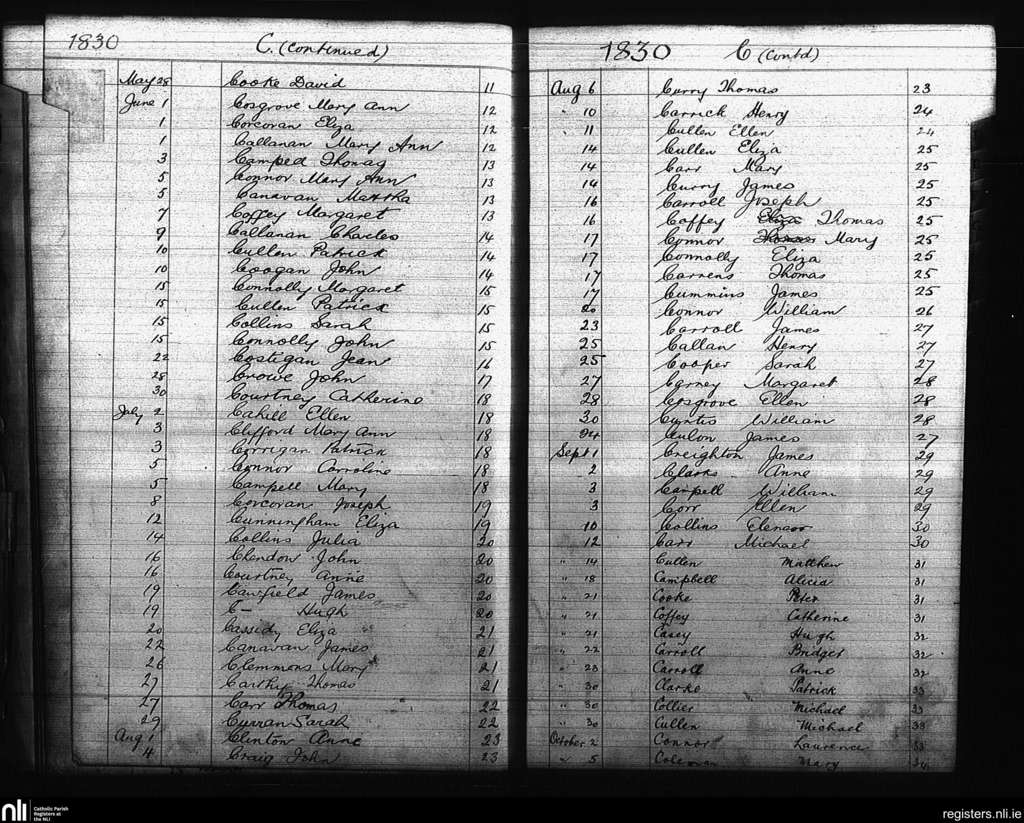 1830 C. (continued)
May 28 Cooke David 11
June 1 Cosgrove Mary Ann 12
1 Corcoran Eliza 12
1 Callanan Mary Ann 12
3 Camped Thomas 13
5 Connor Mary Ann 13
5 Canavan Martha 13
7 Coffey Margaret 13
9 Callanan Charles 14
10 Cullen Patrick 14
10 Coogan John 14
15 Connolly Margaret 15
15 Cullen Patrick 15
15 Collins Sarah 15
15 Connolly John 15
22 Costigan Jean 16
28 Crowe John 17
30 Courtney Catherine 18
July 2 Cahill Ellen 18
3 Clifford Mary Ann 18
3 Corrigan Patrick 18
5 Connor Carroline 18
5 Campell Mary 18
8 Corcoran Joseph 19
12 Cunningham Eliza 19
14 Collins Julia 20
16 Clendon John 20
16 Courtney Anne 20
19 Caulfield James 20
19 C— Hugh 20
20 Cassidy Eliza 21
22 Canavan James 21
26 Clemmons Mary 21
27 Carthy Thomas 21
27 Carr Thomas 22
29 Curran Sarah 22
Aug 1 Clinton Anne 23
4 Craig John 23
1830 C (contd)
Aug 6 Curry Thomas 23
" 10 Carrick Henry 24
" 11 Cullen Ellen 24
14 Cullen Eliza 25
14 Carr Mary 25
14 Curry James 25
16 Carroll Joseph 25
16 Coffey Eliza Thomas 25
17 Connor Thomas Mary 25
17 Connolly Eliza 25
17 Carrens Thomas 25
17 Cummins James 25
20 Connor William 26
23 Carroll James 27
25 Callan Henry 27
25 Cooper Sarah 27
27 Carney Margaret 28
28 Cosgrove Ellen 28
30 Curtis William 28
24 James 27
Sept 1 Creighton James 29
2 Clarke Anne 29
3 Campell William 29
3 Corr Ellen 29
10 Collins Elenor 30
12 Carr Michael 30
" 14 Cullen Matthew 31
" 18 Campbell Alicia 31
" 21 Cooke Peter 31
" 21 Coffey Catherine 31
" 21 Casey Hugh 32
" 22 Carroll Bridget 32
" 23 Carroll Anne 32
" 30 Clarke Patrick 33
" 30 Collier Michael 33
" 30 Cullen Michael 33
October 2 Connor Laurence 33
" 5 Coleman Mary 34
nli Catholic Parish Registers at the NLI
registers.nli.ie